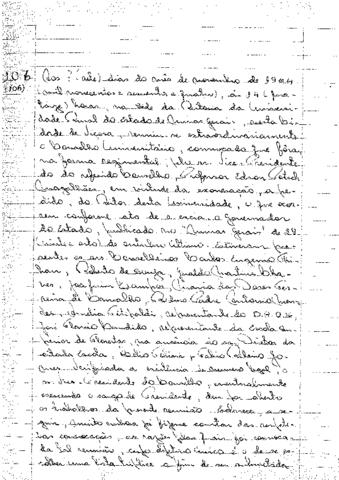 106
(106)
Aos 7 (sete) dias do mês de novembro de 1964
(mil novecentos e sessenta e quatro), às 14 (qua-
torze) horas, na sede da Reitoria da Universi-
dade Rural do Estado de Minas Gerais, nesta ci-
dade de Viçosa, reuniu-se extraordinariamente
o Conselho Universitário, convocado que fôra,
na forma regimental, pelo sr. Vice-Presidente
do referido Conselho, Professor Edson
Magalhães, em virtude da exoneração, a pe-
dido, do Reitor desta Universidade, o que ocor-
reu conforme ato de s. excia. o governador
do Estado, publicado no "Minas Gerais" de 28
(vinte e oito) de outubro último. Estiveram pre-
sentes os srs. Conselheiros Carlos Eugenio
Roberto de Geraldo Martins Cha-
ves, Joaquim
reira de Carvalho, Padre Antonio Men-
des, representante do
José Flavio Candido, representante da Escola Su-
perior de Florestas, na ausência do sr. Diretor da
citada Escola, Fabio Ribeiro Go-
mes. Verificada a existência de número legal, o
sr. Vice-Presidente do Conselho, eventualmente
exercendo o cargo de Presidente, deu por aberto
os trabalhos da presente reunião. Esclarece, a se-
guir, muito embora já fizesse constar das respec-
tivas convocações, as razões pelas quais foi convoca-
da tal reunião, cujo objetivo único é o de se es-
colher uma lista tríplice a fim de ser submetida